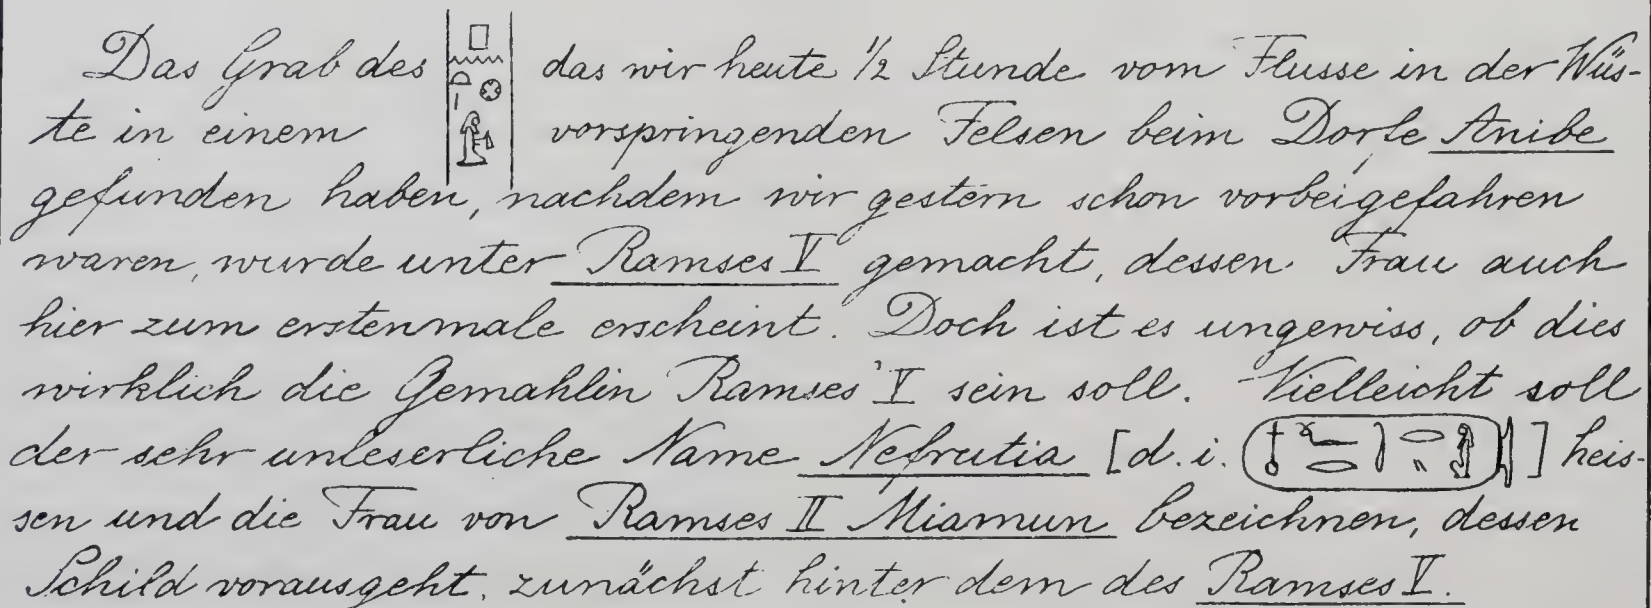 Das Grab des 𓊪𓈖𓏏𓏤𓊖 das wir heute ½ Stunde vom Flusse in der Wüs-
te in einem vorspringenden Felsen beim Dorfe Anibe
gefunden haben, nachdem wir gestern schon vorbeigefahren
waren, wurde unter Ramses V gemacht, dessen Frau auch
hier zum erstenmale erscheint. Doch ist es ungewiss, ob dies
wirklich die Gemahlin Ramses' V sein soll. Vielleicht soll
der sehr unleserliche Name Nefrutia [d. i. ] heis-
sen und die Frau von Ramses II Miamun bezeichnen, dessen
Schild vorausgeht, zunächst hinter dem des Ramses V.